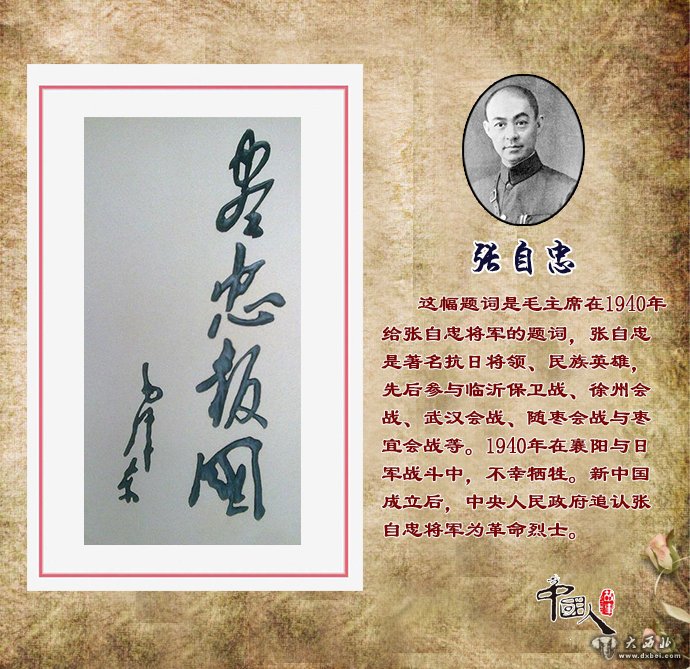 盡忠報國
毛澤東
张自忠
这幅题词是毛主席在1940年
给张自忠将军的题词，张自忠
是著名抗日将领、民族英雄，
先后参与临沂保卫战、徐州会
战、武汉会战、随枣会战与枣
宜会战等。1940年在襄阳与日
军战斗中，不幸牺牲。新中国
成立后，中央人民政府追认张
自忠将军为革命烈士。
中國人
故事
大西北
www.dxbei.com